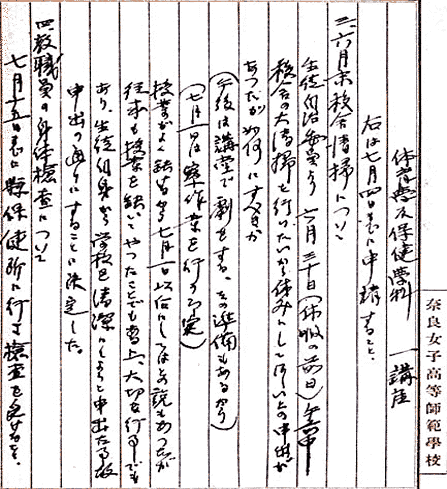 奈良女子高等師範學校
体育学及保健学科 一講座
右は七月四日までに申請すること、
三、六月末校舎清掃について
生徒自治委員より六月三十日(休暇の前日)午前中
校舎の大清掃を行ひたいから休みにしてほしいとの申出が
あつたが如何にすべきか
(午後は講堂で劇をする、その準備もあるから)
(七月一日は 作業を行ふ予定)
授業がよく欠けるから七月一日以后にしてはとの説もあつたが
往来も授業を欠いてやつたことでもある上、大切な行事でも
あり、生徒自身から学校を清潔にしようと申出たる故
申出の通りにすることに決定した。
四、教職員の身体検査について
七月十五日までに縣保健所に行き検査を受ける事、